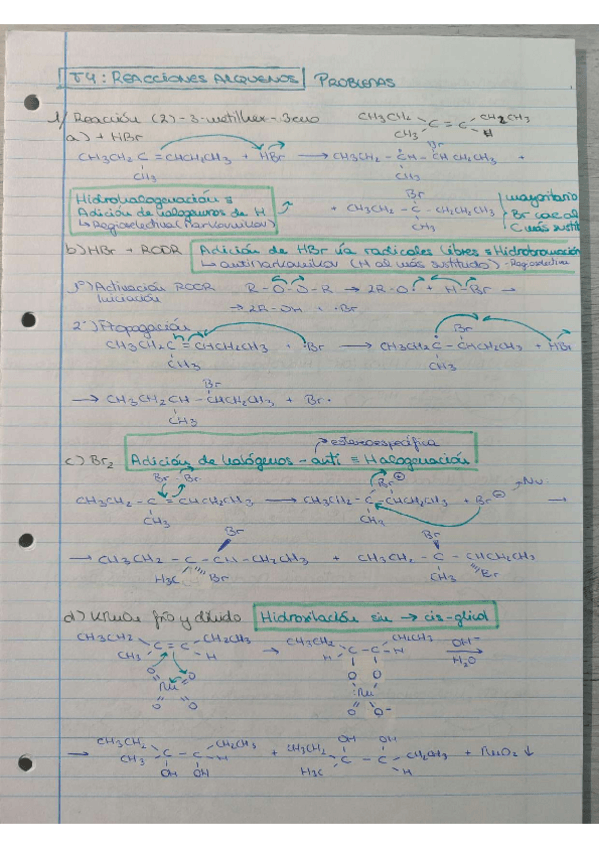 T4: REACCIONES ALQUENOS PROBLEMAS
1/ Reacción (Z)-3-metilhex-3eno CH3CH2 C = C CH2CH3
CH3 H
a) + HBr
CH3CH2 C = CHCH2CH3 + HBr → CH3CH2 - CH - CH CH2CH3 +
CH3 CH3 Br
Hidrohalogenación ≡
Adición de halógenos de H
↳ Regioselectiva (Markovnikov)
+ CH3CH2 - C - CH2CH2CH3
Br
CH3
mayoritario
Br cae al
C más sustit
b) HBr + ROOR Adición de HBr vía radicales libres ≡ Hidrobromación
↳ antimarkovnikov (H al más sustituido) - Regioselectiva
1º) Activación ROOR R-O-O-R → 2R-O· + H-Br →
Iniciación → 2R-OH + ·Br
2º) Propagación
CH3CH2C = CHCH2CH3 + ·Br → CH3CH2 - C - CHCH2CH3 + HBr
CH3 CH3 Br
→ CH3CH2CH - CHCH2CH3 + Br·
CH3 Br
estereoespecífica
c) Br2 Adición de halógenos - anti ≡ Halogenación
Br - Br
CH3CH2 - C = CHCH2CH3 → CH3CH2 - C - CHCH2CH3 + Br⊖ Nu →
CH3 CH3 Br⊕
→ CH3CH2 - C - CH - CH2CH3 + CH3CH2 - C - CHCH2CH3
H3C Br Br CH3 Br Br
d) KMnO4 frío y diluido Hidroxilación sin → cis-glicol
CH3CH2 C = C CH2CH3 → CH3CH2 C - C CH2CH3 OH-
CH3 H H H H2O
O O O O
Mn Mn
O O O O-
→ CH3CH2 C - C CH2CH3 + CH3CH2 C - C CH2CH3 + MnO2 ↓
CH3 H H3C H
OH OH OH OH